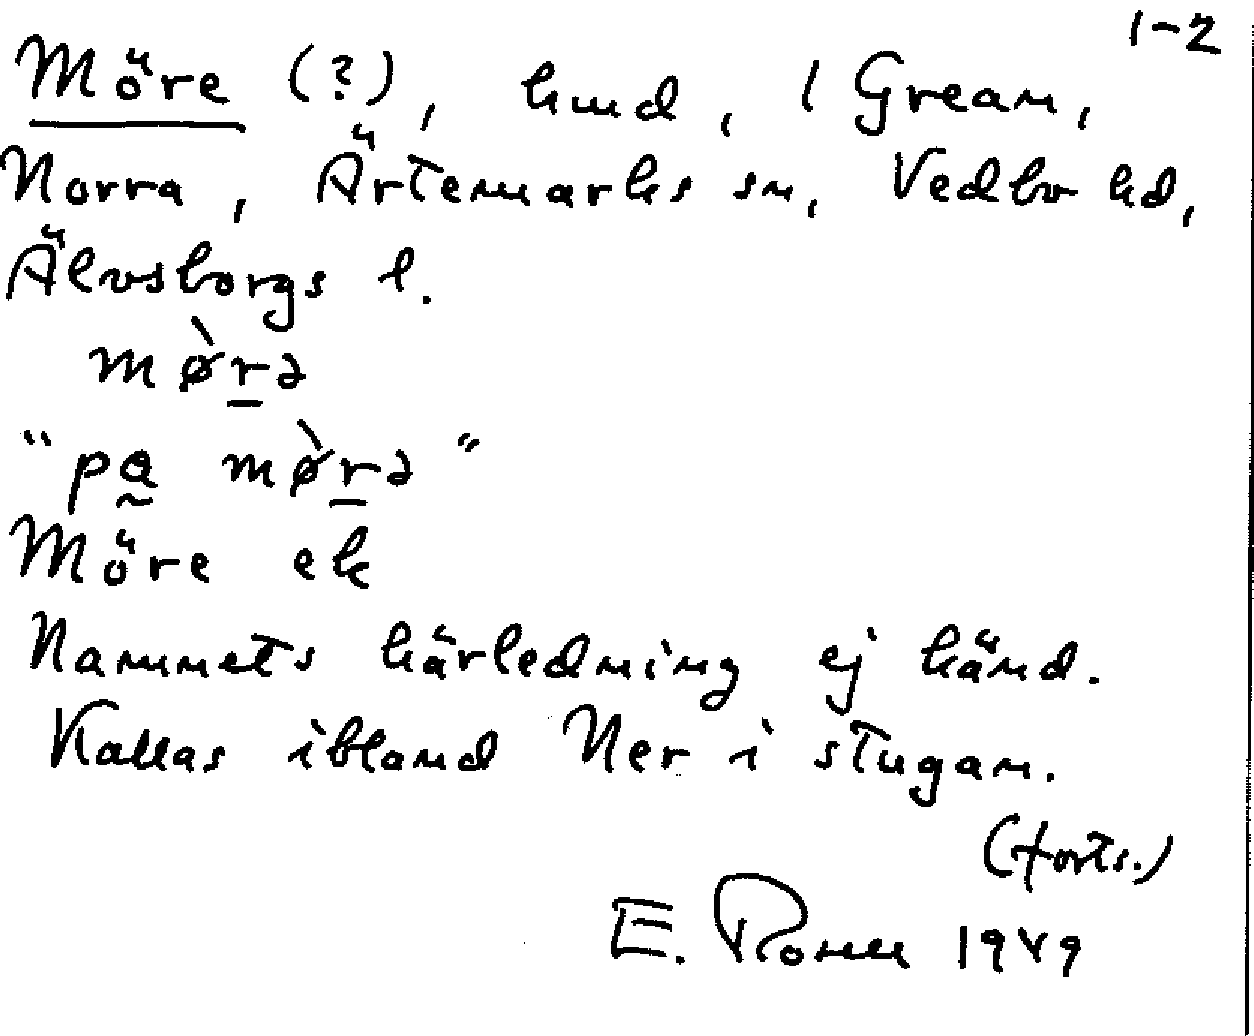 1-2
Möre (?), hmd, i Grean,
Norra, Ärtemarks sn, Vedbo hd,
Älvsborgs l.
mø̀rə
"pa mø̀rə"
Möre ek
Namnets härledning ej känd.
Kallas ibland Ner i stugan.
(forts.)
E. 1949